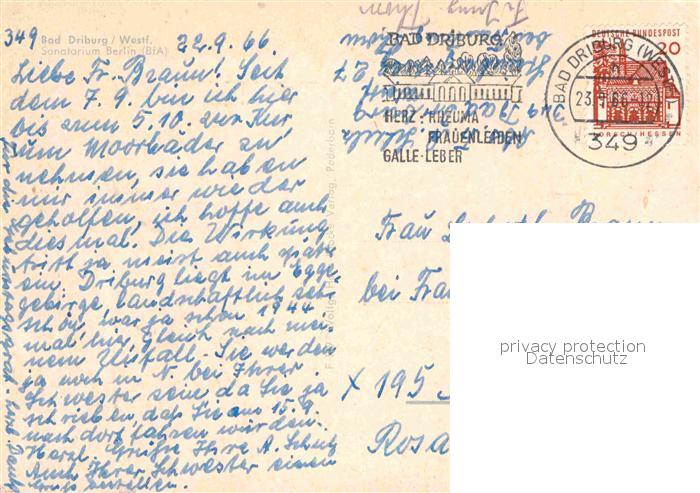 349
Bad Driburg / Westf.
Sanatorium Berlin (BfA)
22.9.66.
Liebe Fr. Braun! Seit
dem 7.9. bin ich hier
bis zum 5.10. zur Kur
um Moorbäder zu
nehmen, sie haben
mir immer wieder
geholfen, ich hoffe auch
diesmal. Die Wirkung
tritt ja meist auch später
ein. Driburg liegt im Egge-
gebirge landschaftlich sehr
schön, war ja schon 1944
mal hier, gleich nach mei-
nem Unfall. Sie werden
ja noch in N. bei Ihrer
Schwester sein da Sie ja
schrieben, daß Sie am 15.9.
nach dort fahren würden.
Herzl. Grüße Ihre A. Schulz
Auch Ihrer Schwester einen
Gruß bestellen.
Verlag, Paderborn
BAD DRIBURG
HERZ · RHEUMA
FRAUENLEIDEN
GALLE · LEBER
BAD DRIBURG (WESTF)
23.9.66
349
DEUTSCHE BUNDESPOST
20
LORSCH/HESSEN
349 Bad
Frau
bei Frau
x 195
Rosa
privacy protection
Datenschutz